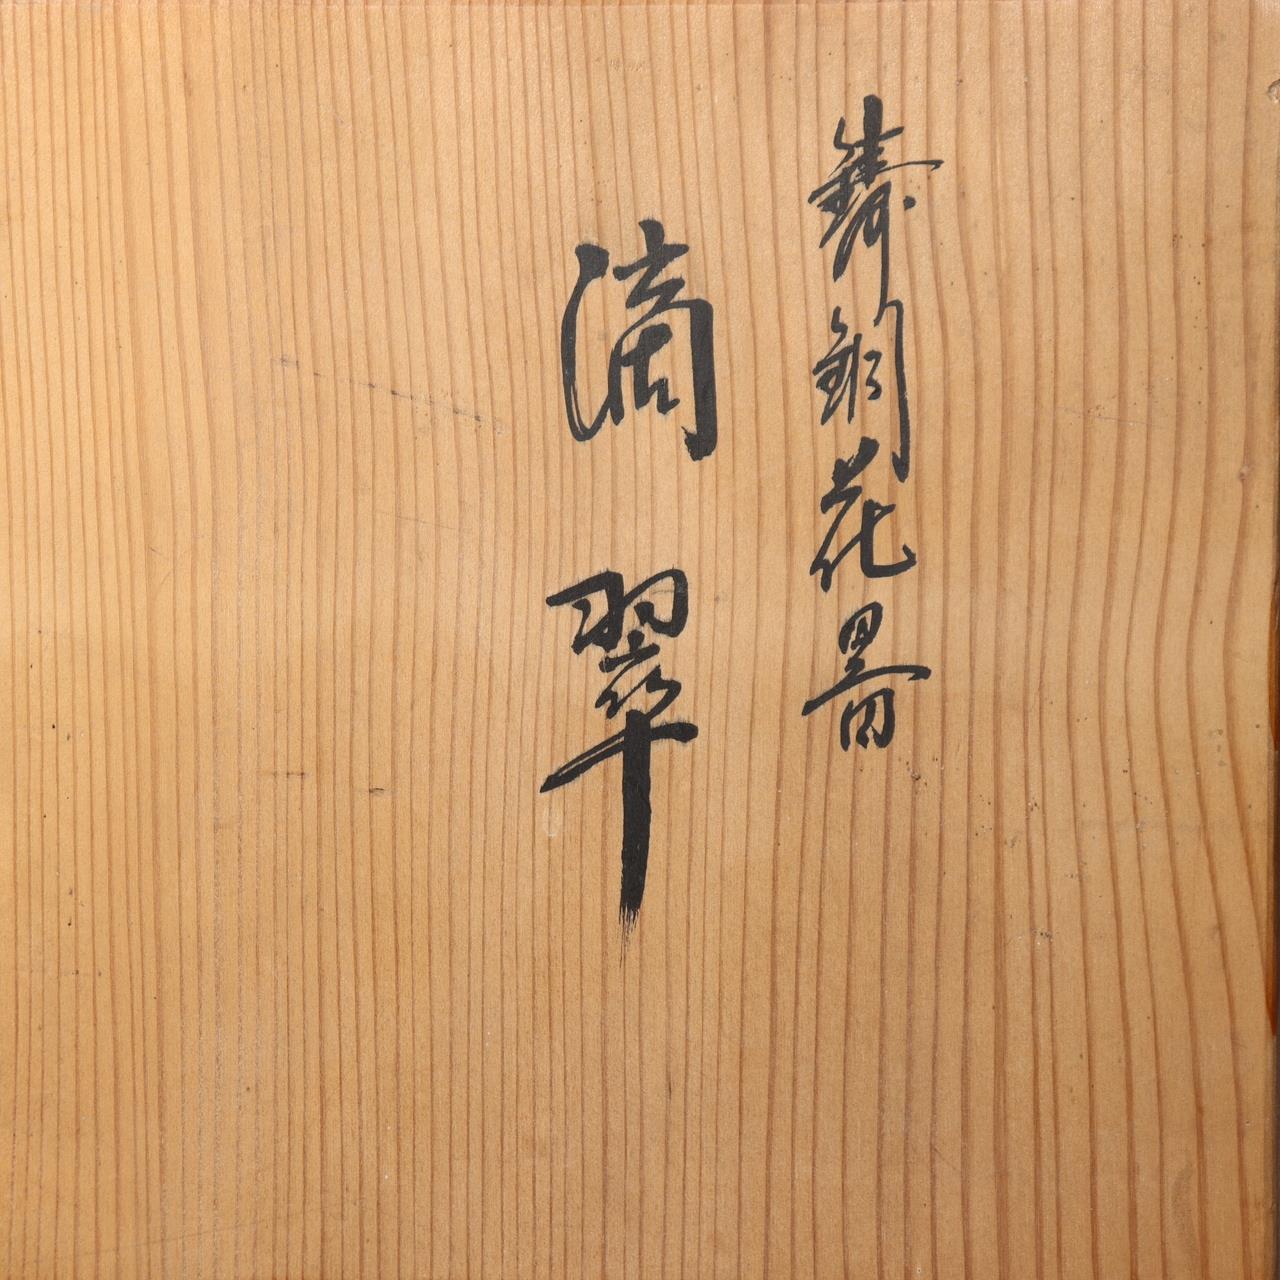 鋳銅花器
滴翠